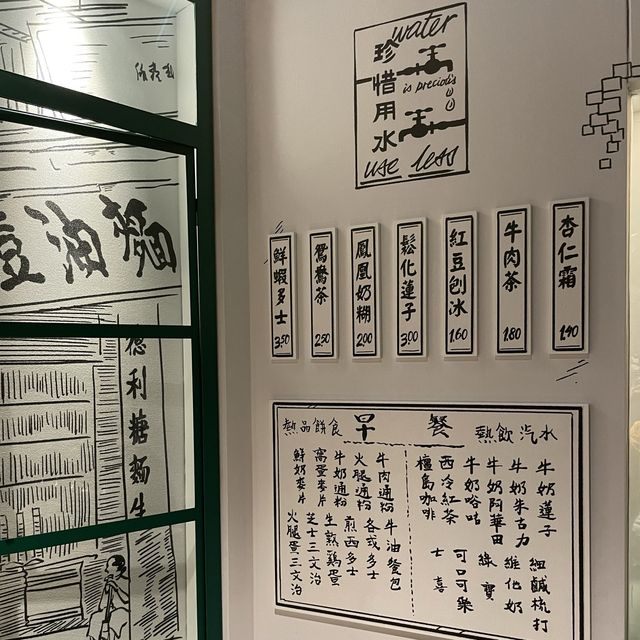 water
珍惜用水
is precious
use less
杏仁霜 1.90
牛肉茶 1.80
紅豆刨冰 1.60
鬆化蓮子 3.00
鳳凰奶糊 2.00
鴛鴦茶 2.50
鮮蝦多士 3.50
熱品餅食 早餐 熱飲汽水
牛奶蓮子
牛奶朱古力
牛奶阿華田
牛奶哈咕
西冷紅茶
檀島咖啡
細鹹梳打
維化奶
綠寶
可口可樂
士喜
牛肉通粉
火腿通粉
牛奶通粉
窩蛋麥片
鮮奶麥片
牛油餐包
各式多士
煎西多士
生熟雞蛋
芝士三文治
火腿蛋三文治
油麵
德利糖麵